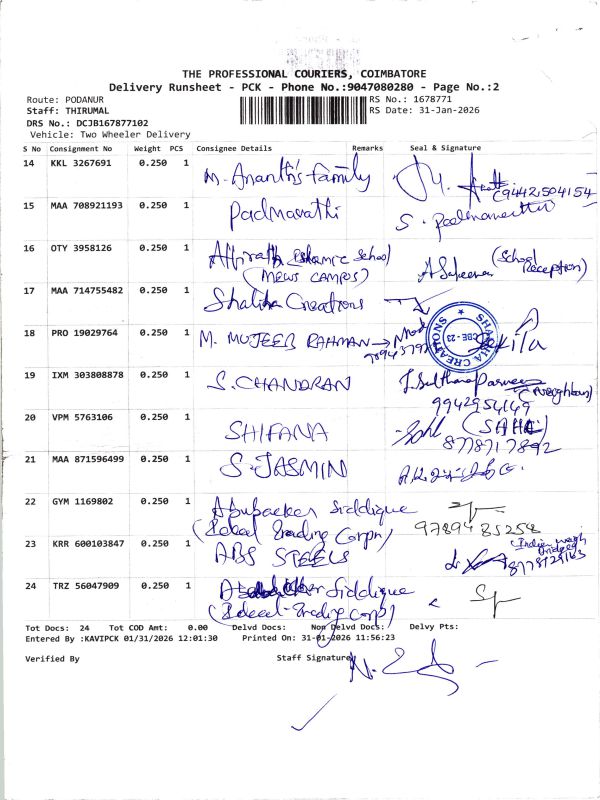 THE PROFESSIONAL COURIERS, COIMBATORE
Delivery Runsheet - PCK - Phone No.:9047080280 - Page No.:2
Route: PODANUR
Staff: THIRUMAL
DRS No.: DCJB167877102
Vehicle: Two Wheeler Delivery
RS No.: 1678771
RS Date: 31-Jan-2026
S No Consignment No Weight PCS Consignee Details Remarks Seal & Signature
14 KKL 3267691 0.250 1 M. Ananth's family
9442504154
15 MAA 708921193 0.250 1 Padmavathi S. Padmavathi
16 OTY 3958126 0.250 1 Islamic School
(MEWS CAMPUS) (School Reception)
17 MAA 714755482 0.250 1 Shaliha Creations
SHALIHA CREATIONS
CBE - 23
18 PRO 19029764 0.250 1 M. MUJEEB RAHMAN →
19 IXM 303808878 0.250 1 S. CHANDRAN J. Sulthana Parveen
(Neighbour)
9942954149
20 VPM 5763106 0.250 1 SHIFANA
8778717892
21 MAA 871596499 0.250 1 S. JASMIN
22 GYM 1169802 0.250 1 Abubacker Siddique
(Ideal Trading Corpn) 9789485258
23 KRR 600103847 0.250 1 ABS STEELS
8778729163
24 TRZ 56047909 0.250 1 Siddique
(Ideal Trading Corp)
Tot Docs: 24 Tot COD Amt: 0.00 Delvd Docs: Non Delvd Docs: Delvy Pts:
Entered By :KAVIPCK 01/31/2026 12:01:30 Printed On: 31-01-2026 11:56:23
Verified By Staff Signature